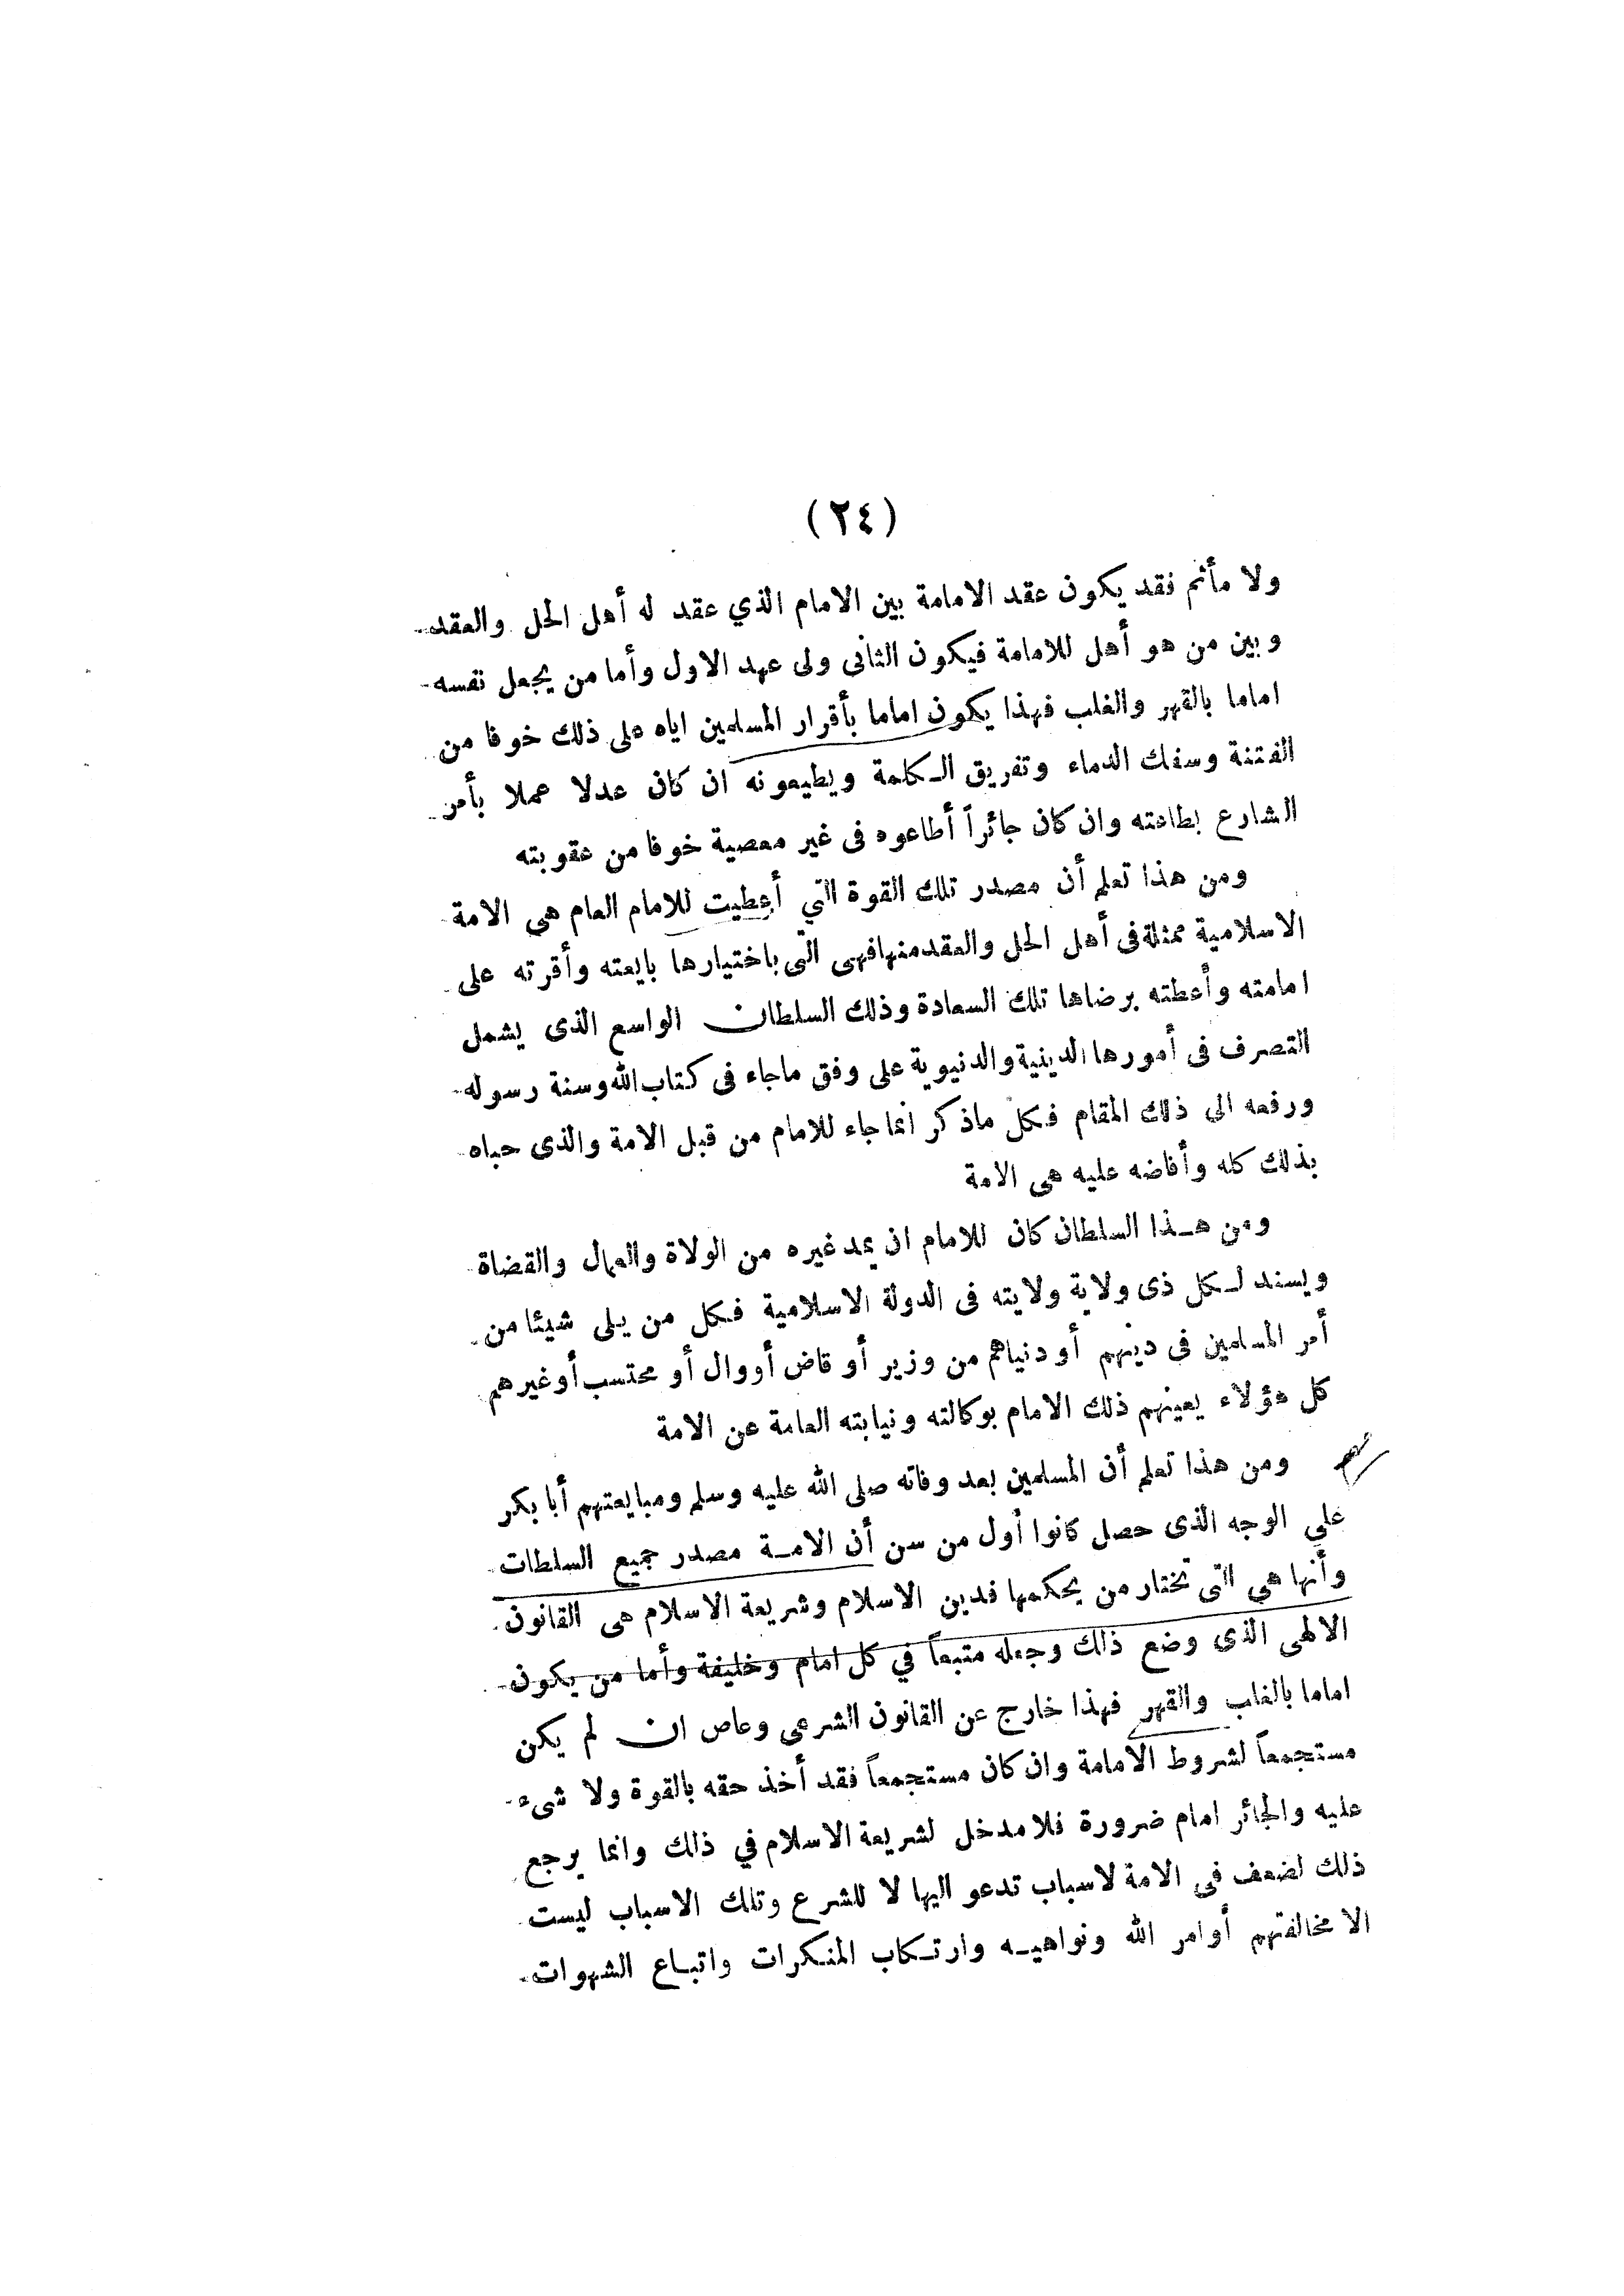 (٢٤)
ولا مأثم فقد يكون عقد الامامة بين الامام الذي عقد له أهل الحل والعقد
وبين من هو أهل للامامة فيكون الثانى ولى عهد الاول وأما من يجعل نفسه
اماما بالقهر والغلب فهذا يكون اماما بأقرار المسلمين اياه على ذلك خوفا من
الفتنة وسفك الدماء وتفريق الكلمة ويطيعونه ان كان عدلا عملا بأمر
الشارع بطاعته وان كان جائراً أطاعوه فى غير معصية خوفا من عقوبته
ومن هذا تعلم أن مصدر تلك القوة التي أعطيت للامام العام هى الامة
الاسلامية ممثلة فى أهل الحل والعقد منها فهى التى باختيارها بايعته وأقرته على
امامته وأعطته برضاها تلك السعادة وذلك السلطان الواسع الذى يشمل
التصرف فى أمورها الدينية والدنيوية على وفق ماجاء فى كتاب الله وسنة رسوله
ورفعه الى ذلك المقام فكل ماذكر انما جاء للامام من قبل الامة والذى حباه
بذلك كله وأفاضه عليه هى الامة
ومن هذا السلطان كان للامام ان يمد غيره من الولاة والعمال والقضاة
ويسند لكل ذى ولاية ولايته فى الدولة الاسلامية فكل من يلى شيئا من
أمر المسلمين فى دينهم أو دنياهم من وزير أو قاض أووال أو محتسب أوغيرهم
كل هؤلاء يعينهم ذلك الامام بوكالته ونيابته العامة عن الامة
ومن هذا تعلم أن المسلمين بعد وفاته صلى الله عليه وسلم ومبايعتهم أبا بكر
علي الوجه الذى حصل كانوا أول من سن أن الامة مصدر جميع السلطات
وأنها هي التى تختار من يحكمها فدين الاسلام وشريعة الاسلام هى القانون
الالهى الذى وضع ذلك وجعله متبعاً في كل امام وخليفة وأما من يكون
اماما بالغلب والقهر فهذا خارج عن القانون الشرعى وعاص ان لم يكن
مستجمعاً لشروط الامامة وان كان مستجمعاً فقد أخذ حقه بالقوة ولا شىء
عليه والجائر امام ضرورة فلا مدخل لشريعة الاسلام في ذلك وانما يرجع
ذلك لضعف فى الامة لاسباب تدعو اليها لا للشرع وتلك الاسباب ليست
الا مخالفتهم أوامر الله ونواهيه وارتكاب المنكرات واتباع الشهوات